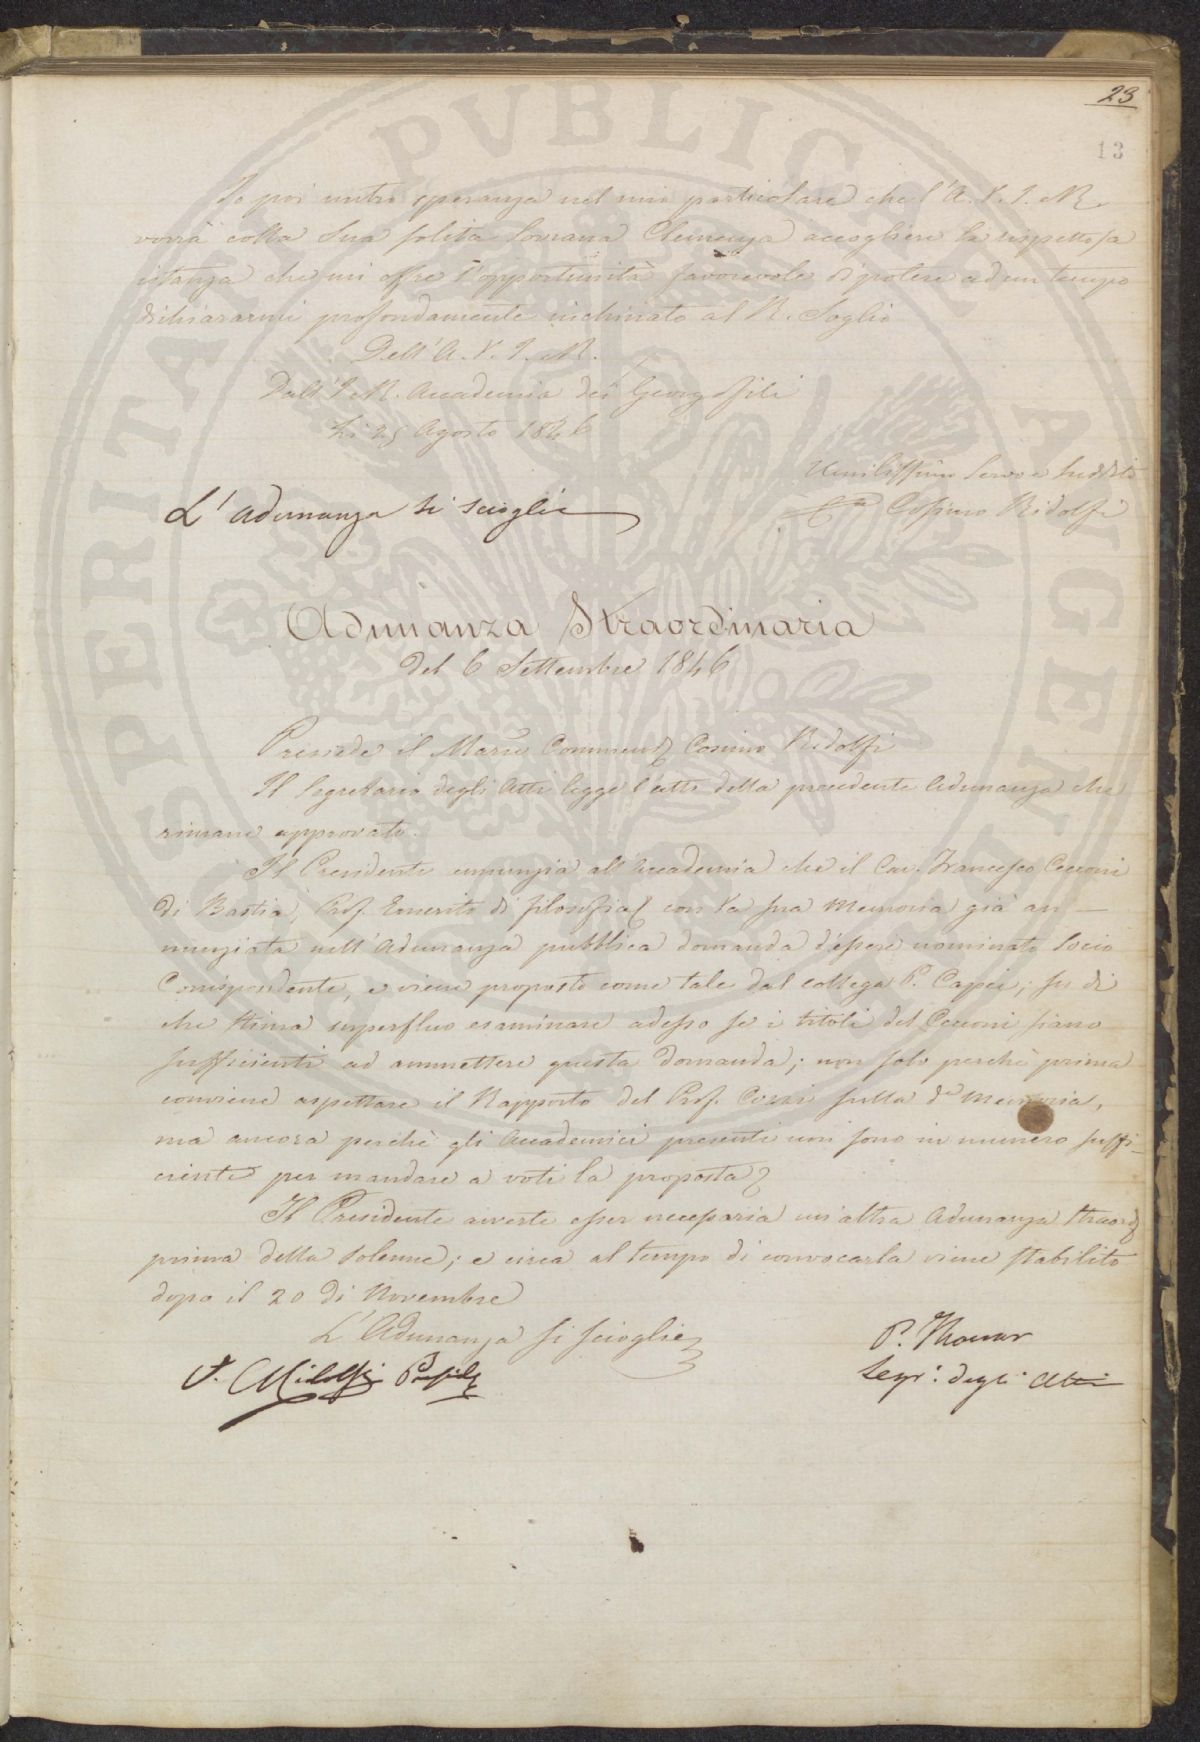 23
13
Io poi nutro speranza nel mio particolare che l'A. V. I. e R.
vorrà colla Sua solita Sovrana Clemenza accogliere la rispettosa
istanza che mi offre l'opportunità favorevole di potere ad un tempo
dichiararmi profondamente inchinato al R. Soglio
Dell'A. V. I. e R.
Dall'I. e R. Accademia dei Georgofili
Li 25 Agosto 1846
Umilissimo Servo e Suddito
Cosimo Ridolfi
L'adunanza si scioglie
Adunanza Straordinaria
del 6 Settembre 1846
Presiede il March. Commend. Cosimo Ridolfi
Il Segretario degli Atti legge l'atto della precedente Adunanza che
rimane approvato.
Il Presidente annunzia all'Accademia che il Cav. Francesco Cecconi
di Bastia, Prof. Emerito di filosofia con la sua Memoria già an-
nunziata nell'Adunanza pubblica domanda d'essere nominato Socio
Corrispondente, e viene proposto come tale dal collega P. Capei; su di
che stima superfluo esaminare adesso se i titoli del Cecconi siano
sufficienti ad ammettere questa domanda; non solo perchè prima
conviene aspettare il Rapporto del Prof. Cozzi sulla da Memoria,
ma ancora perchè gli Accademici presenti non sono in numero suffi-
ciente per mandare a voti la proposta
Il Presidente avverte esser necessaria un'altra Adunanza straord
prima della solenne; e circa al tempo di convocarla viene stabilito
dopo il 20 di Novembre
L'Adunanza si scioglie
P. Thouar
Segr: degli Atti
C. Ridolfi Presid